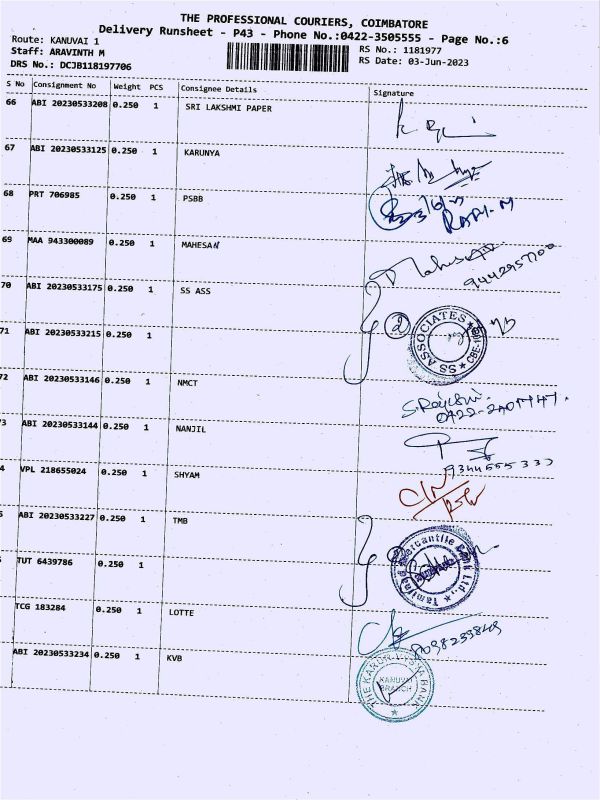 THE PROFESSIONAL COURIERS, COIMBATORE
Delivery Runsheet - P43 - Phone No.:0422-3505555 - Page No.:6
Route: KANUVAI 1
Staff: ARAVINTH M
DRS No.: DCJB118197706
RS No.: 1181977
RS Date: 03-Jun-2023
S No Consignment No Weight PCS Consignee Details Signature
66 ABI 20230533208 0.250 1 SRI LAKSHMI PAPER
67 ABI 20230533125 0.250 1 KARUNYA
68 PRT 706985 0.250 1 PSBB
RAPI-M
69 MAA 943300089 0.250 1 MAHESAN
70 ABI 20230533175 0.250 1 SS ASS
2
SS ASSOCIATES
71 ABI 20230533215 0.250 1
72 ABI 20230533146 0.250 1 NMCT
73 ABI 20230533144 0.250 1 NANJIL
4 VPL 218655024 0.250 1 SHYAM
5 ABI 20230533227 0.250 1 TMB
Tamilnad Mercantile Bank Ltd.,
TUT 6439786 0.250 1
TCG 183284 0.250 1 LOTTE
ABI 20230533234 0.250 1 KVB
THE KARUR VYSYA BANK
KANUVAI
BRANCH